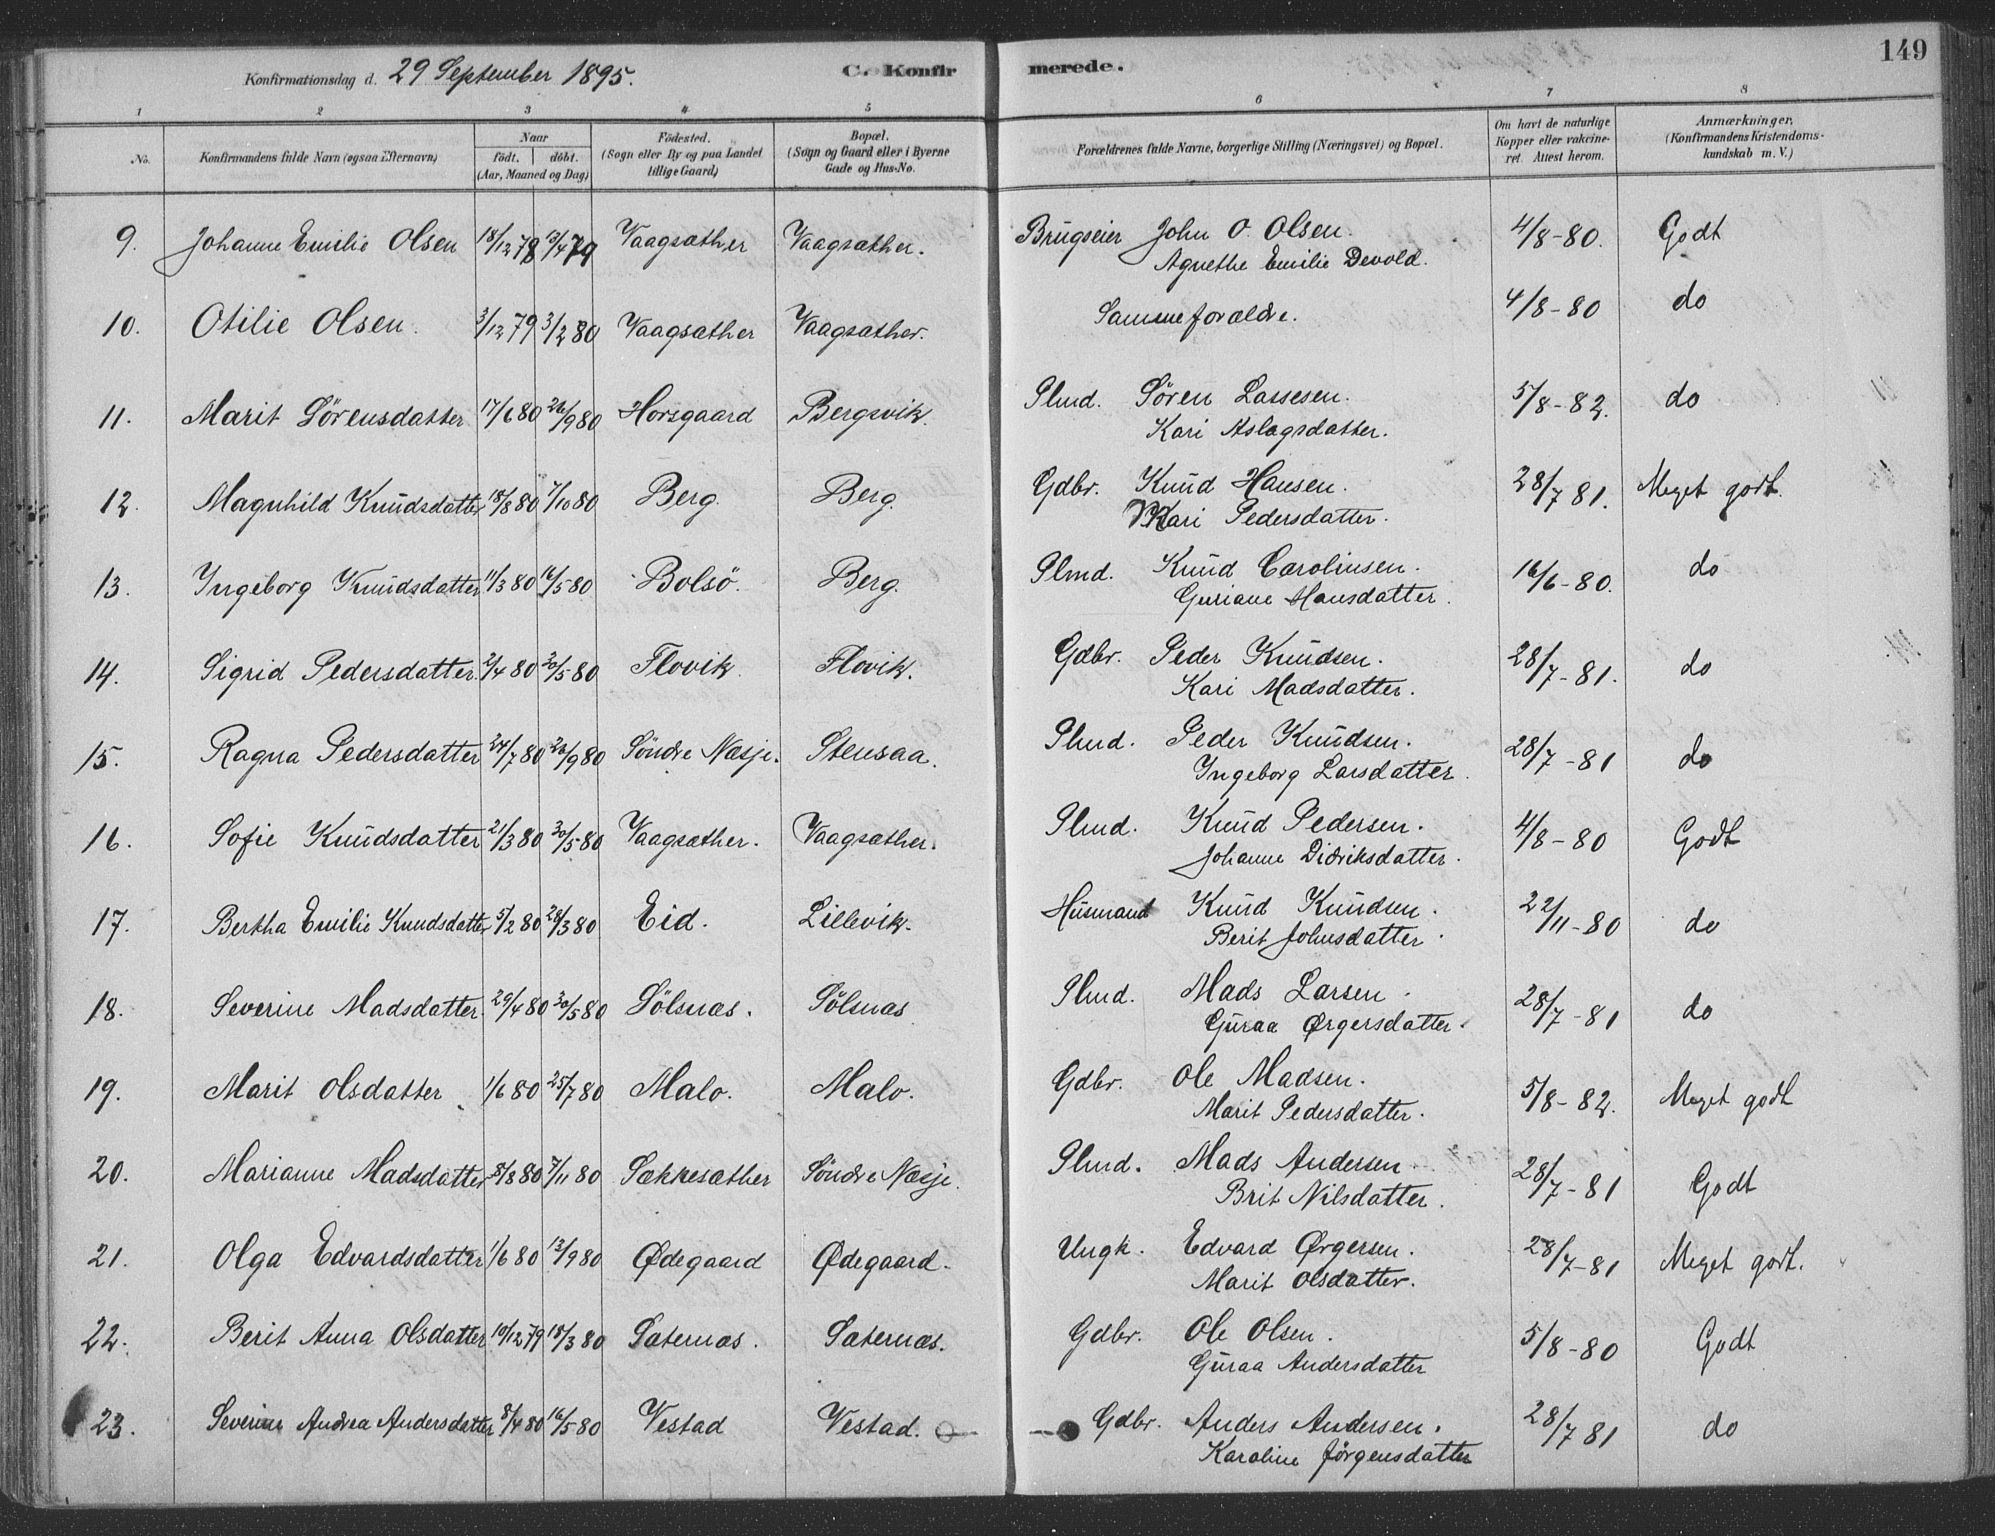 Konfirmationsdag d. 29 September 1895.
C. Konfirmerede.
149
1 2 3 4 5 6 7 8
No.
Konfirmandens fulde Navn (ogsaa Efternavn)
Naar
födt. döbt.
(Aar, Maaned og Dag)
Födested.
(Sogn eller By og paa Landet
tillige Gaard)
Bopæl.
(Sogn og Gaard eller i Byerne
Gade og Hus-No.
Forældrenes fulde Navne, borgerlige Stilling (Næringsvei) og Bopæl.
Om havt de naturlige
Kopper eller vakcine-
ret. Attest herom.
Anmærkninger,
(Konfirmandens Kristendoms-
kundskab m. V.)
9. Johanne Emilie Olsen 18/12 78 13/4 79 Vaagsæther Vaagsæther. Brugseier John O. Olsen. 4/8-80. Godt
Agnethe Emilie Devold.
10. Otilie Olsen. 3/12 79 3/2 80 Vaagsæther Vaagsæther. Samme forældre. 4/8-80 do
11. Marit Sörensdatter 17/6 80 26/9 80 Horsgaard Bergsvik. Plmd. Sören Lassesen. 5/8-82. do
Kari Aslagsdatter.
12. Magnhild Knudsdatter 18/8 80 7/10 80 Berg. Berg. Gdbr. Knud Hansen. 28/7 81. Meget godt.
Kari Pedersdatter.
13. Ingeborg Knudsdatter 11/3 80 16/5 80 Bolsö. Berg. Plmd. Knud Carolinsen. 16/6-80. do
Guriane Hansdatter.
14. Sigrid Pedersdatter. 2/4 80 30/5 80 Flovik Flovik. Gdbr. Peder Knudsen. 28/7-81. do
Kari Madsdatter.
15. Ragna Pedersdatter 24/7 80 26/9 80 Söndre Næsje. Stensaa. Plmd. Peder Knudsen. 28/7-81 do
Ingeborg Larsdatter.
16. Sofie Knudsdatter 21/3 80 30/5 80 Vaagsæther. Vaagsæther. Plmd. Knud Pedersen. 4/8-80 Godt
Johanne Didriksdatter.
17. Bertha Emilie Knudsdatter 5/2 80 28/3 80 Eid. Lillevik. Husmand Knud Knudsen. 22/11-80 do
Berit Johnsdatter.
18. Severine Madsdatter. 29/4 80 30/5 80 Sölsnæs. Sölsnæs Plmd. Mads Larsen. 28/7-81 do
Guraa Ørgersdatter.
19. Marit Olsdatter 1/6 80 25/7 80 Malo. Malo. Gdbr. Ole Madsen. 5/8-82. Meget godt
Marit Pedersdatter.
20. Marianne Madsdatter 8/8 80 7/11 80 Sækkesæther Söndre Næsje. Plmd. Mads Andersen 28/7-81 Godt
Brit Nilsdatter.
21. Olga Edvardsdatter 1/6 80 12/9 80 Ødegaard Ødegaard. Ungk. Edvard Ørgersen. 28/7-81 Meget godt.
Marit Olsdatter.
22. Berit Anna Olsdatter 10/12 79 18/3 80 Sæternæs. Sæternæs. Gdbr. Ole Olsen. 5/8-80 Godt
Guraa Andersdatter
23. Severine Andrea Andersdatter 8/4 80 16/5 80 Vestad Vestad. Gdbr. Anders Andersen. 28/7 81 do
Karoline Jörgensdatter